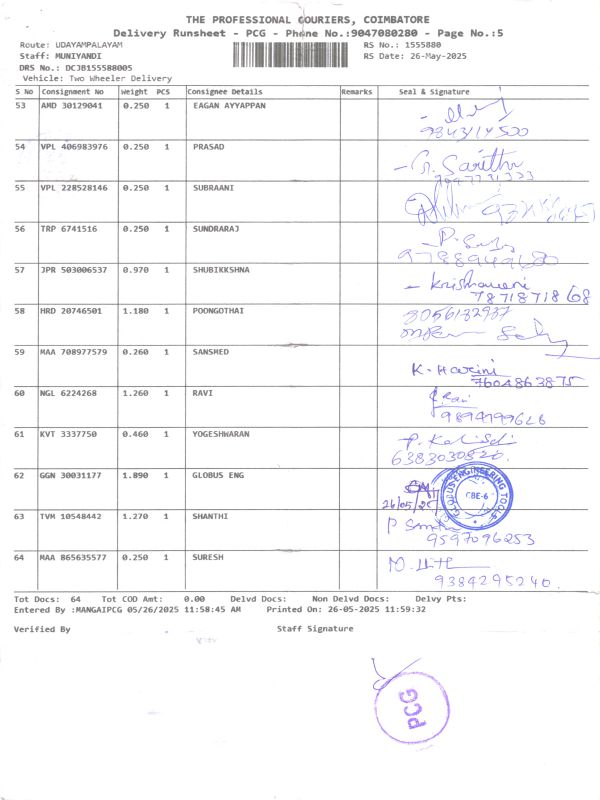 THE PROFESSIONAL COURIERS, COIMBATORE
Delivery Runsheet - PCG - Phone No.:9047080280 - Page No.:5
Route: UDAYAMPALAYAM RS No.: 1555880
Staff: MUNIYANDI RS Date: 26-May-2025
DRS No.: DCJB155588005
Vehicle: Two Wheeler Delivery
S No Consignment No Weight PCS Consignee Details Remarks Seal & Signature
53 AMD 30129041 0.250 1 EAGAN AYYAPPAN
54 VPL 406983976 0.250 1 PRASAD
G. Saritha
55 VPL 228528146 0.250 1 SUBRAANI
56 TRP 6741516 0.250 1 SUNDRARAJ
9788949680
57 JPR 503006537 0.970 1 SHUBIKKSHNA
- Krishnaveni
7871871868
58 HRD 20746501 1.180 1 POONGOTHAI
8056132937
59 MAA 708977579 0.260 1 SANSMED
K. Harini
7604863875
60 NGL 6224268 1.260 1 RAVI
Ravi
61 KVT 3337750 0.460 1 YOGESHWARAN
6383030520.
62 GGN 30031177 1.890 1 GLOBUS ENG
GLOBUS ENGINEERING TOOLS
CBE-6
26/05/25
63 TVM 10548442 1.270 1 SHANTHI
9597096253
64 MAA 865635577 0.250 1 SURESH
9384295240.
Tot Docs: 64 Tot COD Amt: 0.00 Delvd Docs: Non Delvd Docs: Delvy Pts:
Entered By :MANGAIPCG 05/26/2025 11:58:45 AM Printed On: 26-05-2025 11:59:32
Verified By Staff Signature
PCG